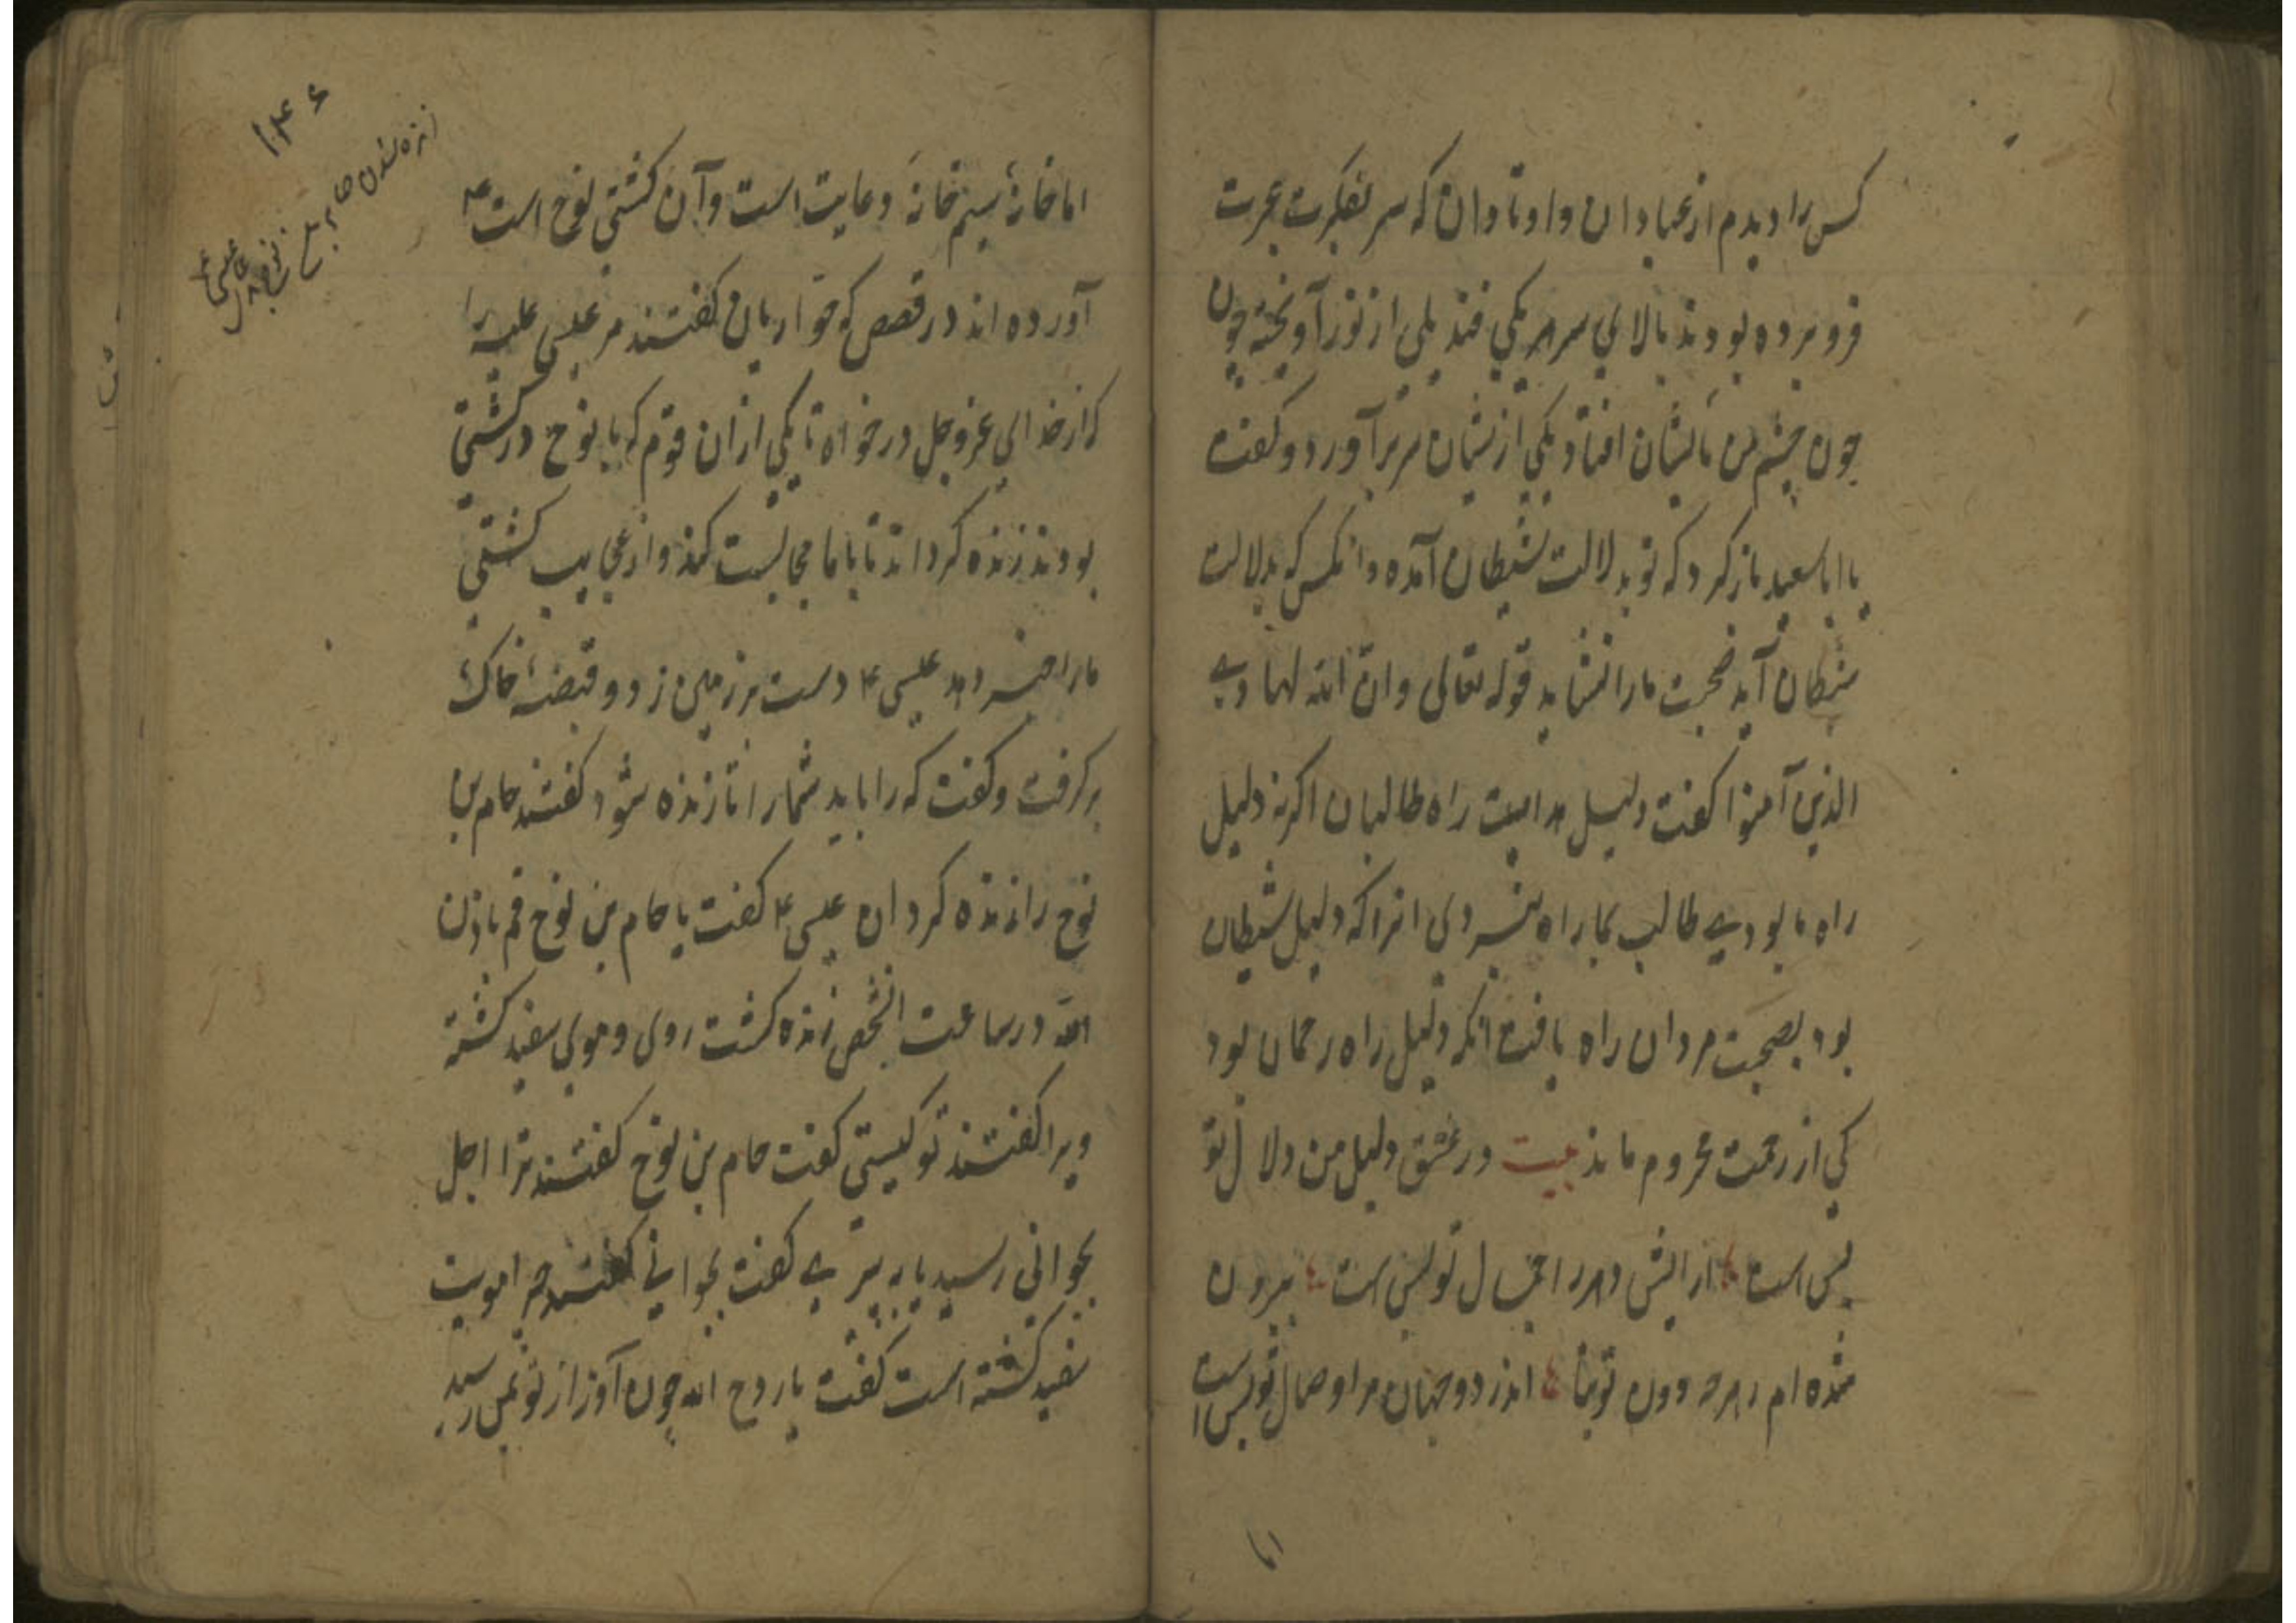 کس را دیدم از عبادان و اوتادان که سر بفکرت عبرت
فرو برده بودند بالای سر هر یکی قندیلی از نور آویخته چون
چون چشم من بایشان افتاد یکی ازیشان سر برآورد و گفت
یا اباسعید بازگرد که تو بدلالت شیطان آمده و انکس که بدلالت
شیطان آید صحبت ما را نشاید قوله تعالی وان الله لهادی
الذین آمنوا گفت دلیل هدایت راه طالبان اگر نه دلیل
راه ما بودی طالب بما راه نبردی انرا که دلیل شیطان
بود بصحبت مردان راه یافت انکه دلیل راه رحمان بود
کی از رحمت محروم ماند بیت در عشق دلیل من دلال تو
بس است ارایش دهر را جمال تو بس است بیرون
شده ام ز هرچه دون تو اندر دو جهان مرا وصال تو بس است
اما
اما خانۀ سیم خانۀ دعایت است و آن کشتی نوح است ع
آورده اند در قصص که حواریان گفتند مر عیسی علیه را
که از خدای عزوجل درخواه تا یکی از ان قوم که با نوح در کشتی
بودند زنده گرداند تا با ما مجالست کند و از عجایب کشتی
ما را خبر دهد عیسی ع دست بر زمین زد و قبضۀ خاک
برگرفت و گفت که را باید شما را تا زنده شود گفتند حام بن
نوح را زنده گردان عیسی ع گفت یا حام بن نوح قم باذن
الله در ساعت انشخص زنده گشت روی و موی سفید گشته
ویرا گفتند تو کیستی گفت حام بن نوح گفتند ترا اجل
بجوانی رسید یا به پیری گفت بجوانی گفتند چرا مویت
سفید گشته است گفت یا روح الله چون آواز تو بمن رسید
۱۴۶
زنده شدن حام بن نوح
عیسی ع